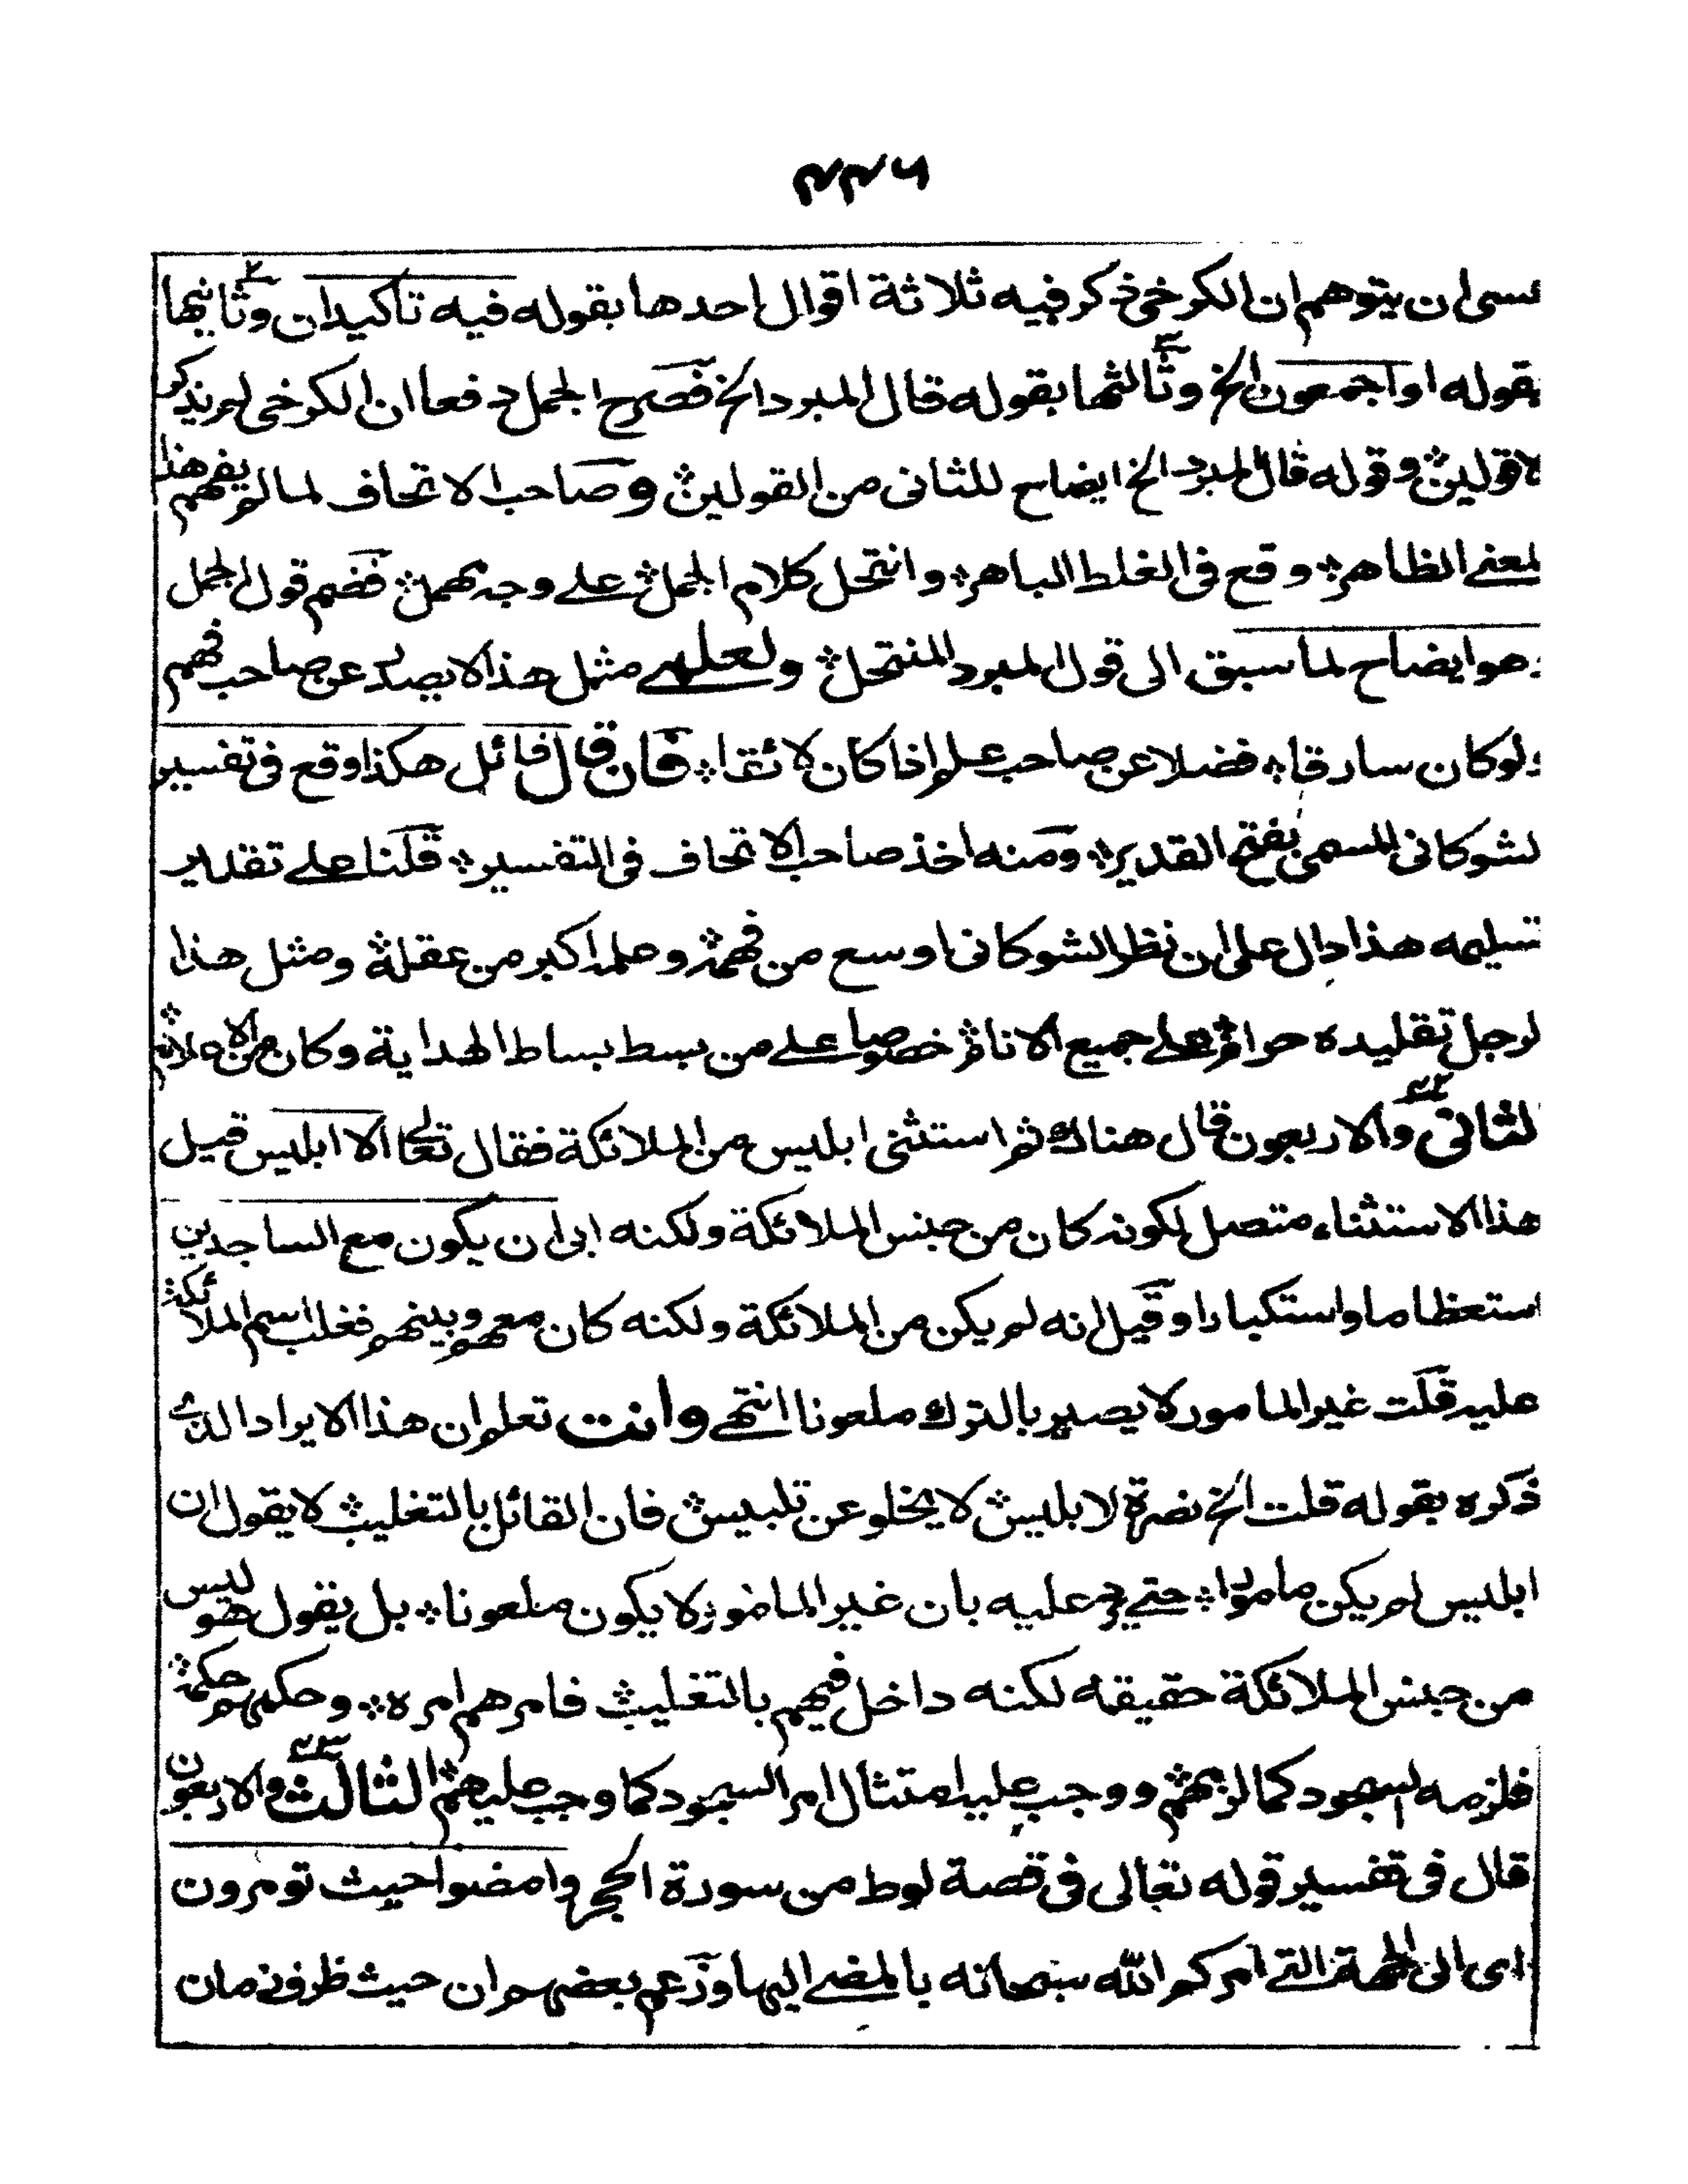 عسى ان يتوهم ان الكرخى ذكر فيه ثلاثة اقوال احدها بقوله فيه تاكيدان وثانيها
بقوله او اجمعون الخ وثالثها بقوله قال المبرد الخ فصرح الجمل دفعا ان الكرخى لم يذكر
الا قولين وقوله قال المبرد الخ ايضاح للثانى من القولين وصاحب الاتحاف لما لم يفهم هذا
المعنى الظاهر وقع فى الغلط الباهر وانتحل كلام الجمل على وجه مهمل فضم قول الجمل
وهو ايضاح لما سبق الى قول المبرد المنتحل ولعلمى مثل هذا لا يصدر عن صاحب فهم
ولو كان سارقا فضلا عن صاحب علم اذا كان لائقا فان قال قائل هكذا وقع فى تفسير
الشوكانى المسمى بفتح القدير ومنه اخذ صاحب الاتحاف فى التفسير قلنا على تقدير
تسليمه هذا دال على ان نظر الشوكانى اوسع من فهمه وعلمه اكبر من عقله ومثل هذا
الرجل تقليده حرام على جميع الانام خصوصا على من بسط بساط الهداية وكان من الاعلام
الثانى والاربعون ٤٢ قال هناك ثم استثنى ابليس من الملائكة فقال تعالى الا ابليس قيل
هذا الاستثناء متصل لكونه كان من جنس الملائكة ولكنه ابى ان يكون مع الساجدين
استعظاما واستكبارا وقيل انه لم يكن من الملائكة ولكنه كان معهم وبينهم فغلب اسم الملائكة
عليه قلت غير المامور لا يصير بالترك ملعونا انتهى وانت تعلم ان هذا الايراد الذى
ذكره بقوله قلت الخ نصرة لابليس لا يخلو عن تلبيس فان القائل بالتغليب لا يقول ان
ابليس لم يكن مامورا حتى يرد عليه بان غير المامور لا يكون ملعونا بل يقول هو ليس
من جنس الملائكة حقيقه لكنه داخل فيهم بالتغليب فامرهم امره وحكمهم حكمه
فلزمه السجود كما لزمهم ووجب عليه امتثال امر السجود كما وجب عليهم الثالث والاربعون ٤٣
قال فى تفسير قوله تعالى فى قصة لوط من سورة الحجر وامضوا حيث تومرون
اى الى الجهة التى امركم الله سبحانه بالمضى اليها وزعم بعضهم ان حيث ظرف زمان